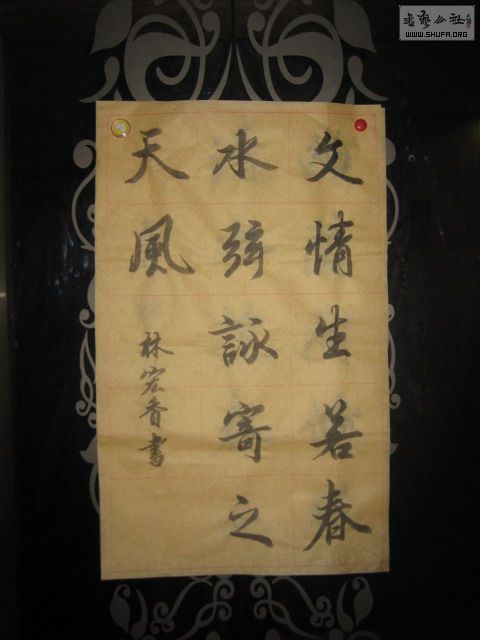 文情生若春
水弹詠寄之
天風
林宏香書
書藝公社
WWW.SHUFA.ORG